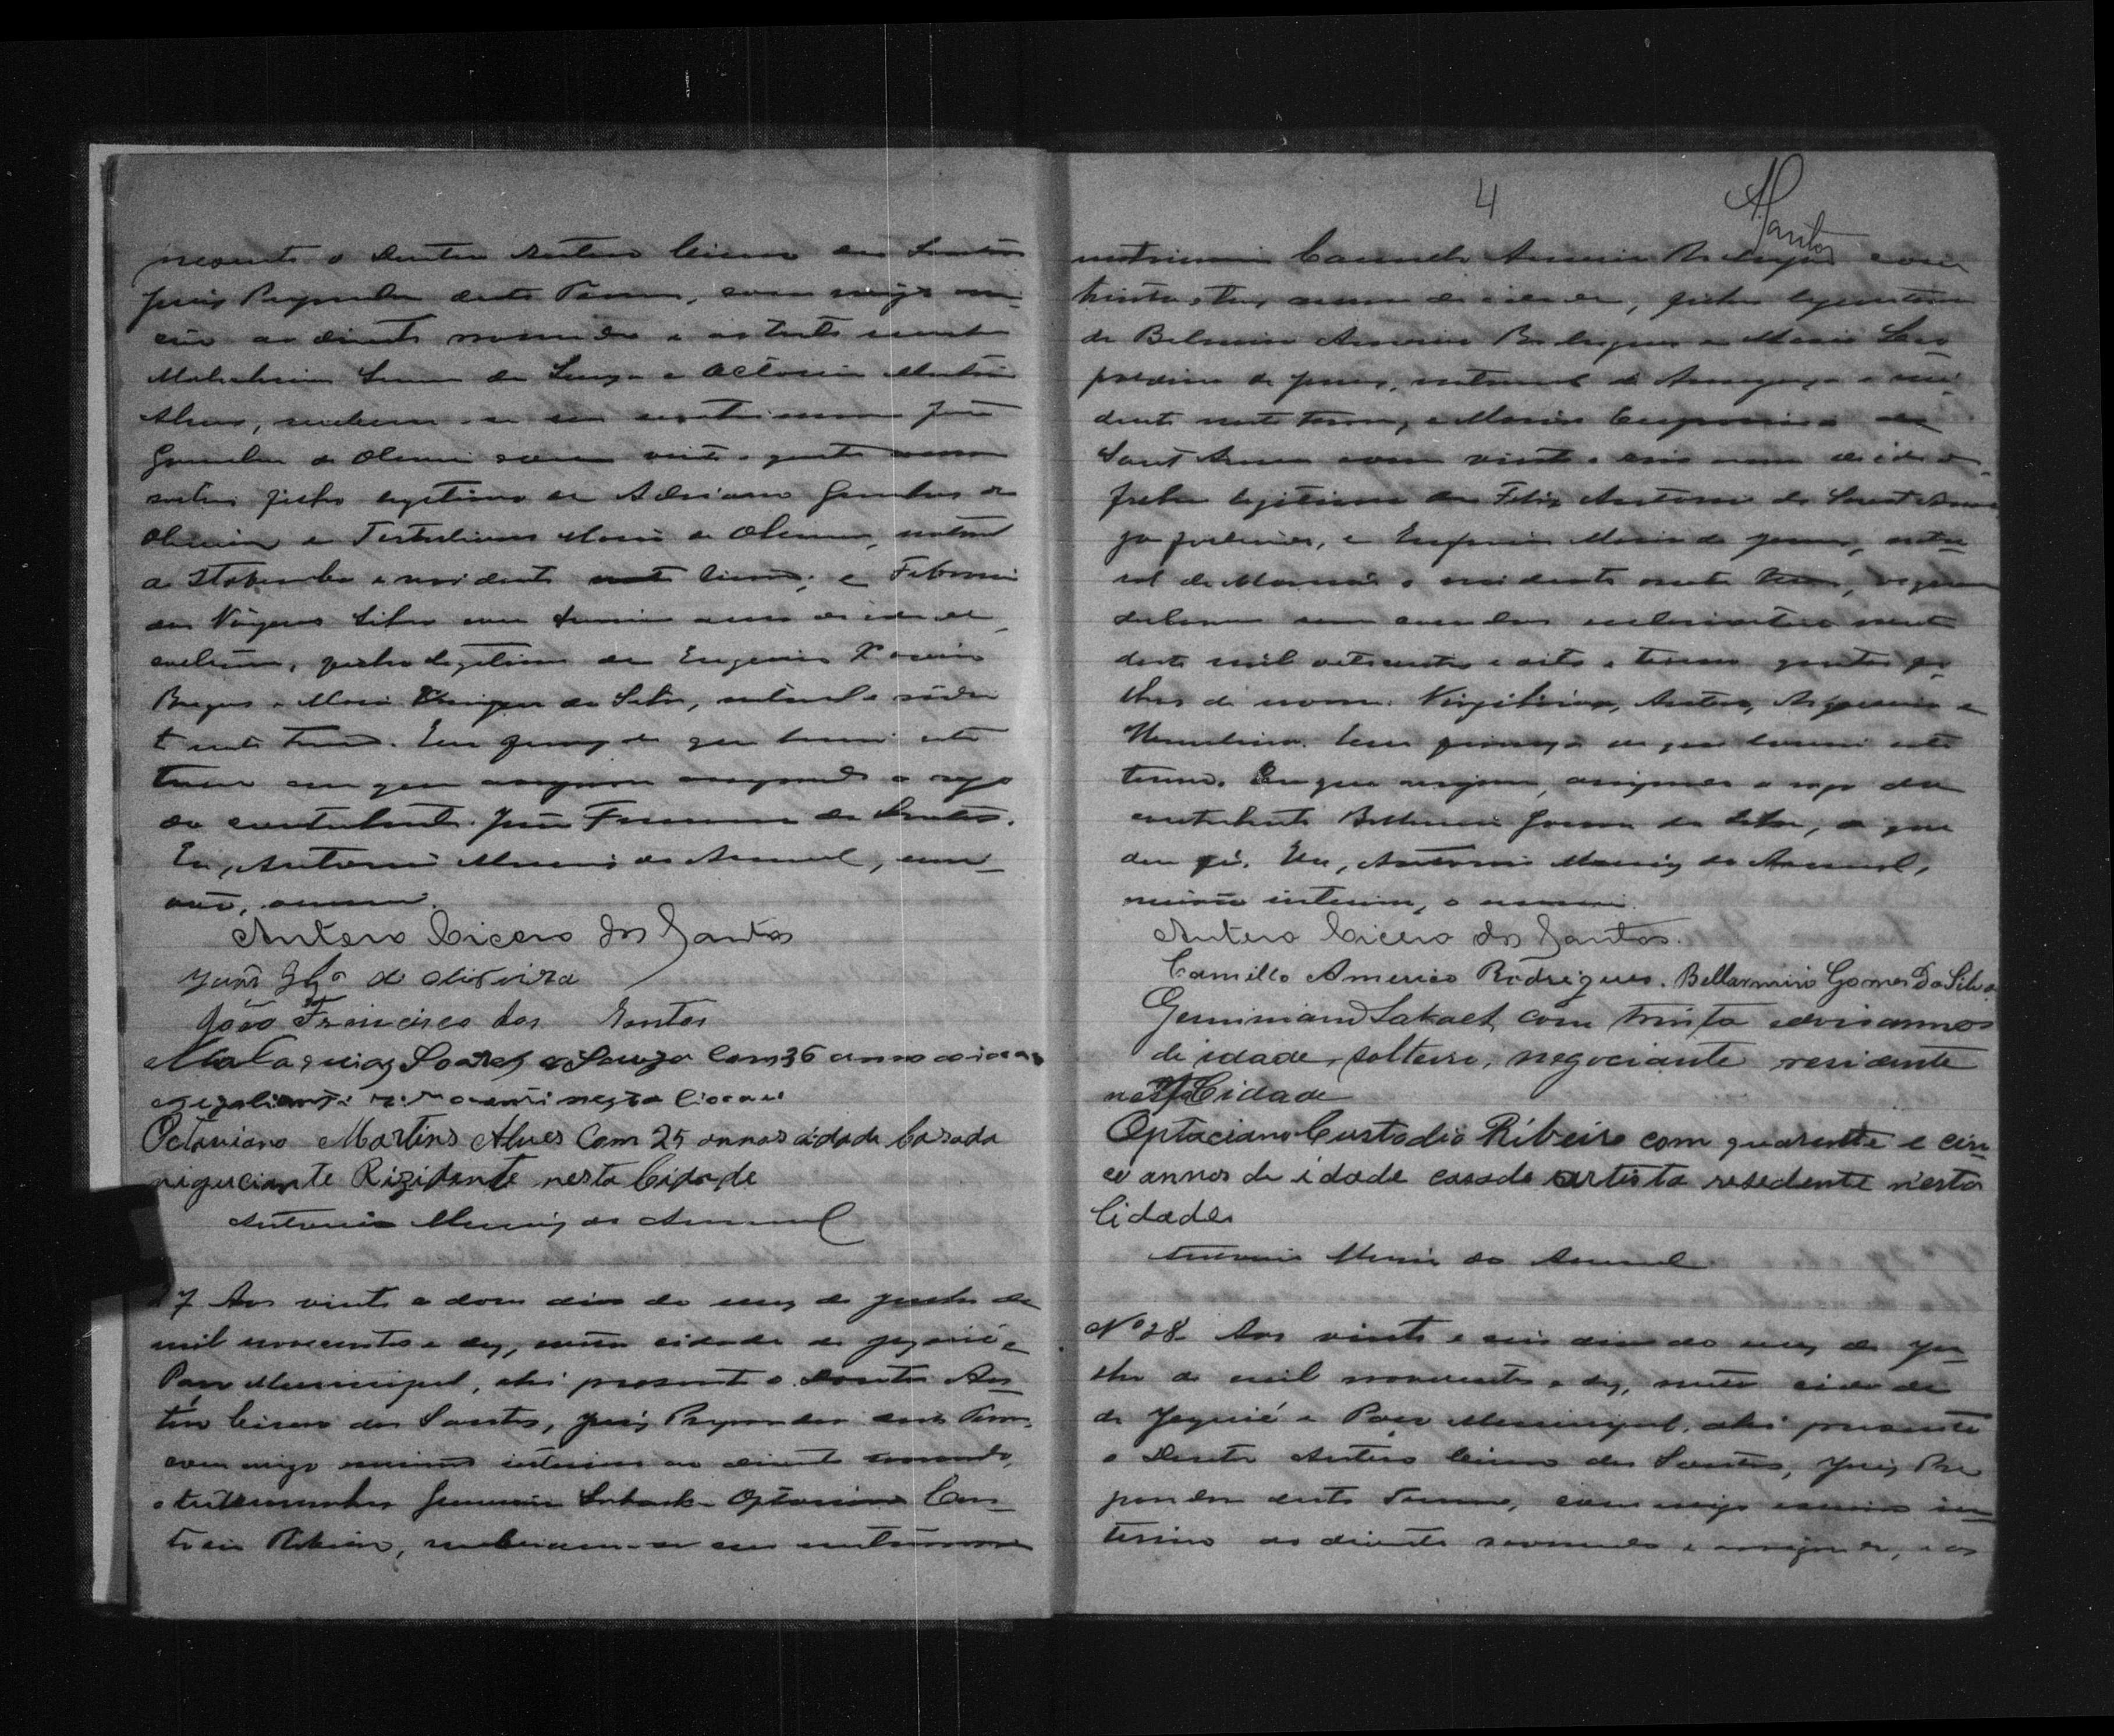 presente o Doutor Antero Cicero dos Santos
Juiz Preparador deste Termo, commigo
ao diante nomeado e as
Malachias Soares de Souza e Octavian Martins
Alves, receberam-se em matrimonio João
Gonçalves de Oliveira com vinte e quatro annos
filho legitimo de Adriano Gonçalves de
Oliveira e Tertuliana Maria de Oliveira, natural
de e residente neste Termo; e
das Virgens Silva com annos de idade,
solteira, filha legitima de Eugenio
Borges e Maria da Silva, natural e residen
te neste Termo. Em firmeza do que lavrei este
termo em que assignam assignando a rogo
da contrahente João Francisco dos Santos.
Eu, Antonio Muniz do Amaral, escri_
vão, escrevi.
Antero Cicero dos Santos
João Glz de Oliveira
João Francisco dos Santos
Malaquias Soares de Souza Com 36 anno de idade
negoliante nesta Cidade
Octaviano Martins Alves Com 25 annos didade Casado
niguciante Rizidente nesta Cidade
Antonio Muniz do Amaral
27 Aos vinte e dois dias do mez de Junho de
mil novecentos e dez, nesta cidade de Jequié e
Paço Municipal, ahi presente o Doutor An_
tero Cicero dos Santos, Juiz Preparador deste Termo,
commigo escrivão interino ao diante nomeado,
e testemunhas Geminiano Sakaet e Optaciano Cus_
todio Ribeiro, receberam-se em matrimonio
4
ASantos
matrimonio Camillo Americo Rodrigues com
trinta e tres annos de idade, filho legitimo
de Belmiro Americo Rodrigues e Maria Leo
poldina de Jesus, natural de Amargosa e resi_
dente neste termo, e Maria Euphrosina de
Sant'Anna com vinte e seis annos de idade,
filha legitima de Felix Antonio de Sant'Anna
ja fallecido, e Maria de Jesus, natu_
ral de Maracás e residente neste Termo,
declaram serem casados ecclesiasticamente
desde mil oitocentos e oito e terem quatro fi_
lhos de nomes: Antero, e
Em firmeza do que lavrei este
termo. Em que assignam, assignando a rogo da
contrahente Bellarmino Gomes da Silva, do que
dou fé. Eu, Antonio Muniz do Amaral,
escrivão interino, o escrevi.
Antero Cicero dos Santos.
Camillo Americo Rodrigues. Bellarmino Gomes Da Silva
Geminiano Sakaet, com trinta e dois annos
de idade, solteiro, negociante residente
nesta Cidade
Optaciano Custodio Ribeiro com quarenta e cin_
co annos de idade casado artista resedente n'esta
Cidades
Antonio Muniz do Amaral
Nº 28 Aos vinte e seis dias do mez de Ju_
lho de mil novecentos e dez, nesta cidade
de Jequié e Paço Municipal, ahi presente
o Doutor Antero Cicero dos Santos, Juiz Pre
parador deste Termo, commigo escrivão in_
terino ao diante nomeado e assignado, e as